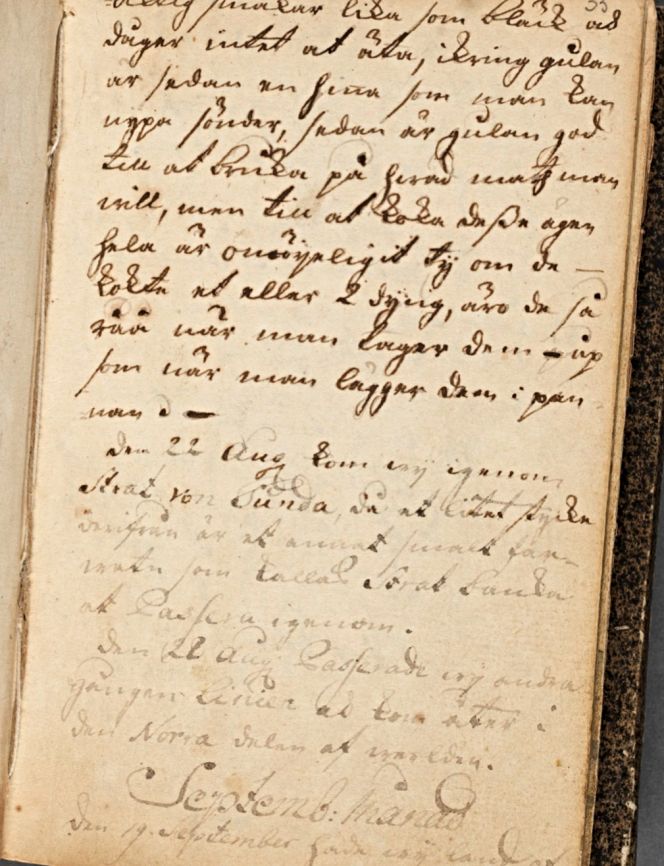 smakar lika som bläck ad
duger intet at äta, ikring gulan
är sedan en hina som man kan
nypa sönder, sedan är gulan god
till at bruka på hvad mat man
will, men till at koka deße ägen
hela är omöyeligit ty om de —
kokte et eller 2 dygn, äro de så
råå när man tager dem — up
som när man lägger dem i pan
nan —
den 22 Aug kom wy igenom
Strat von Sunda, då et litet stycke
derifrån är et annat smalt far-
watn som kallas Strat Banka
at Passera igenom.
den 28 Aug Passerade wy andra
gången Linien ad kom åter i
den Norra delen af werlden.
Septemb: Månad
den 19 September hade wy